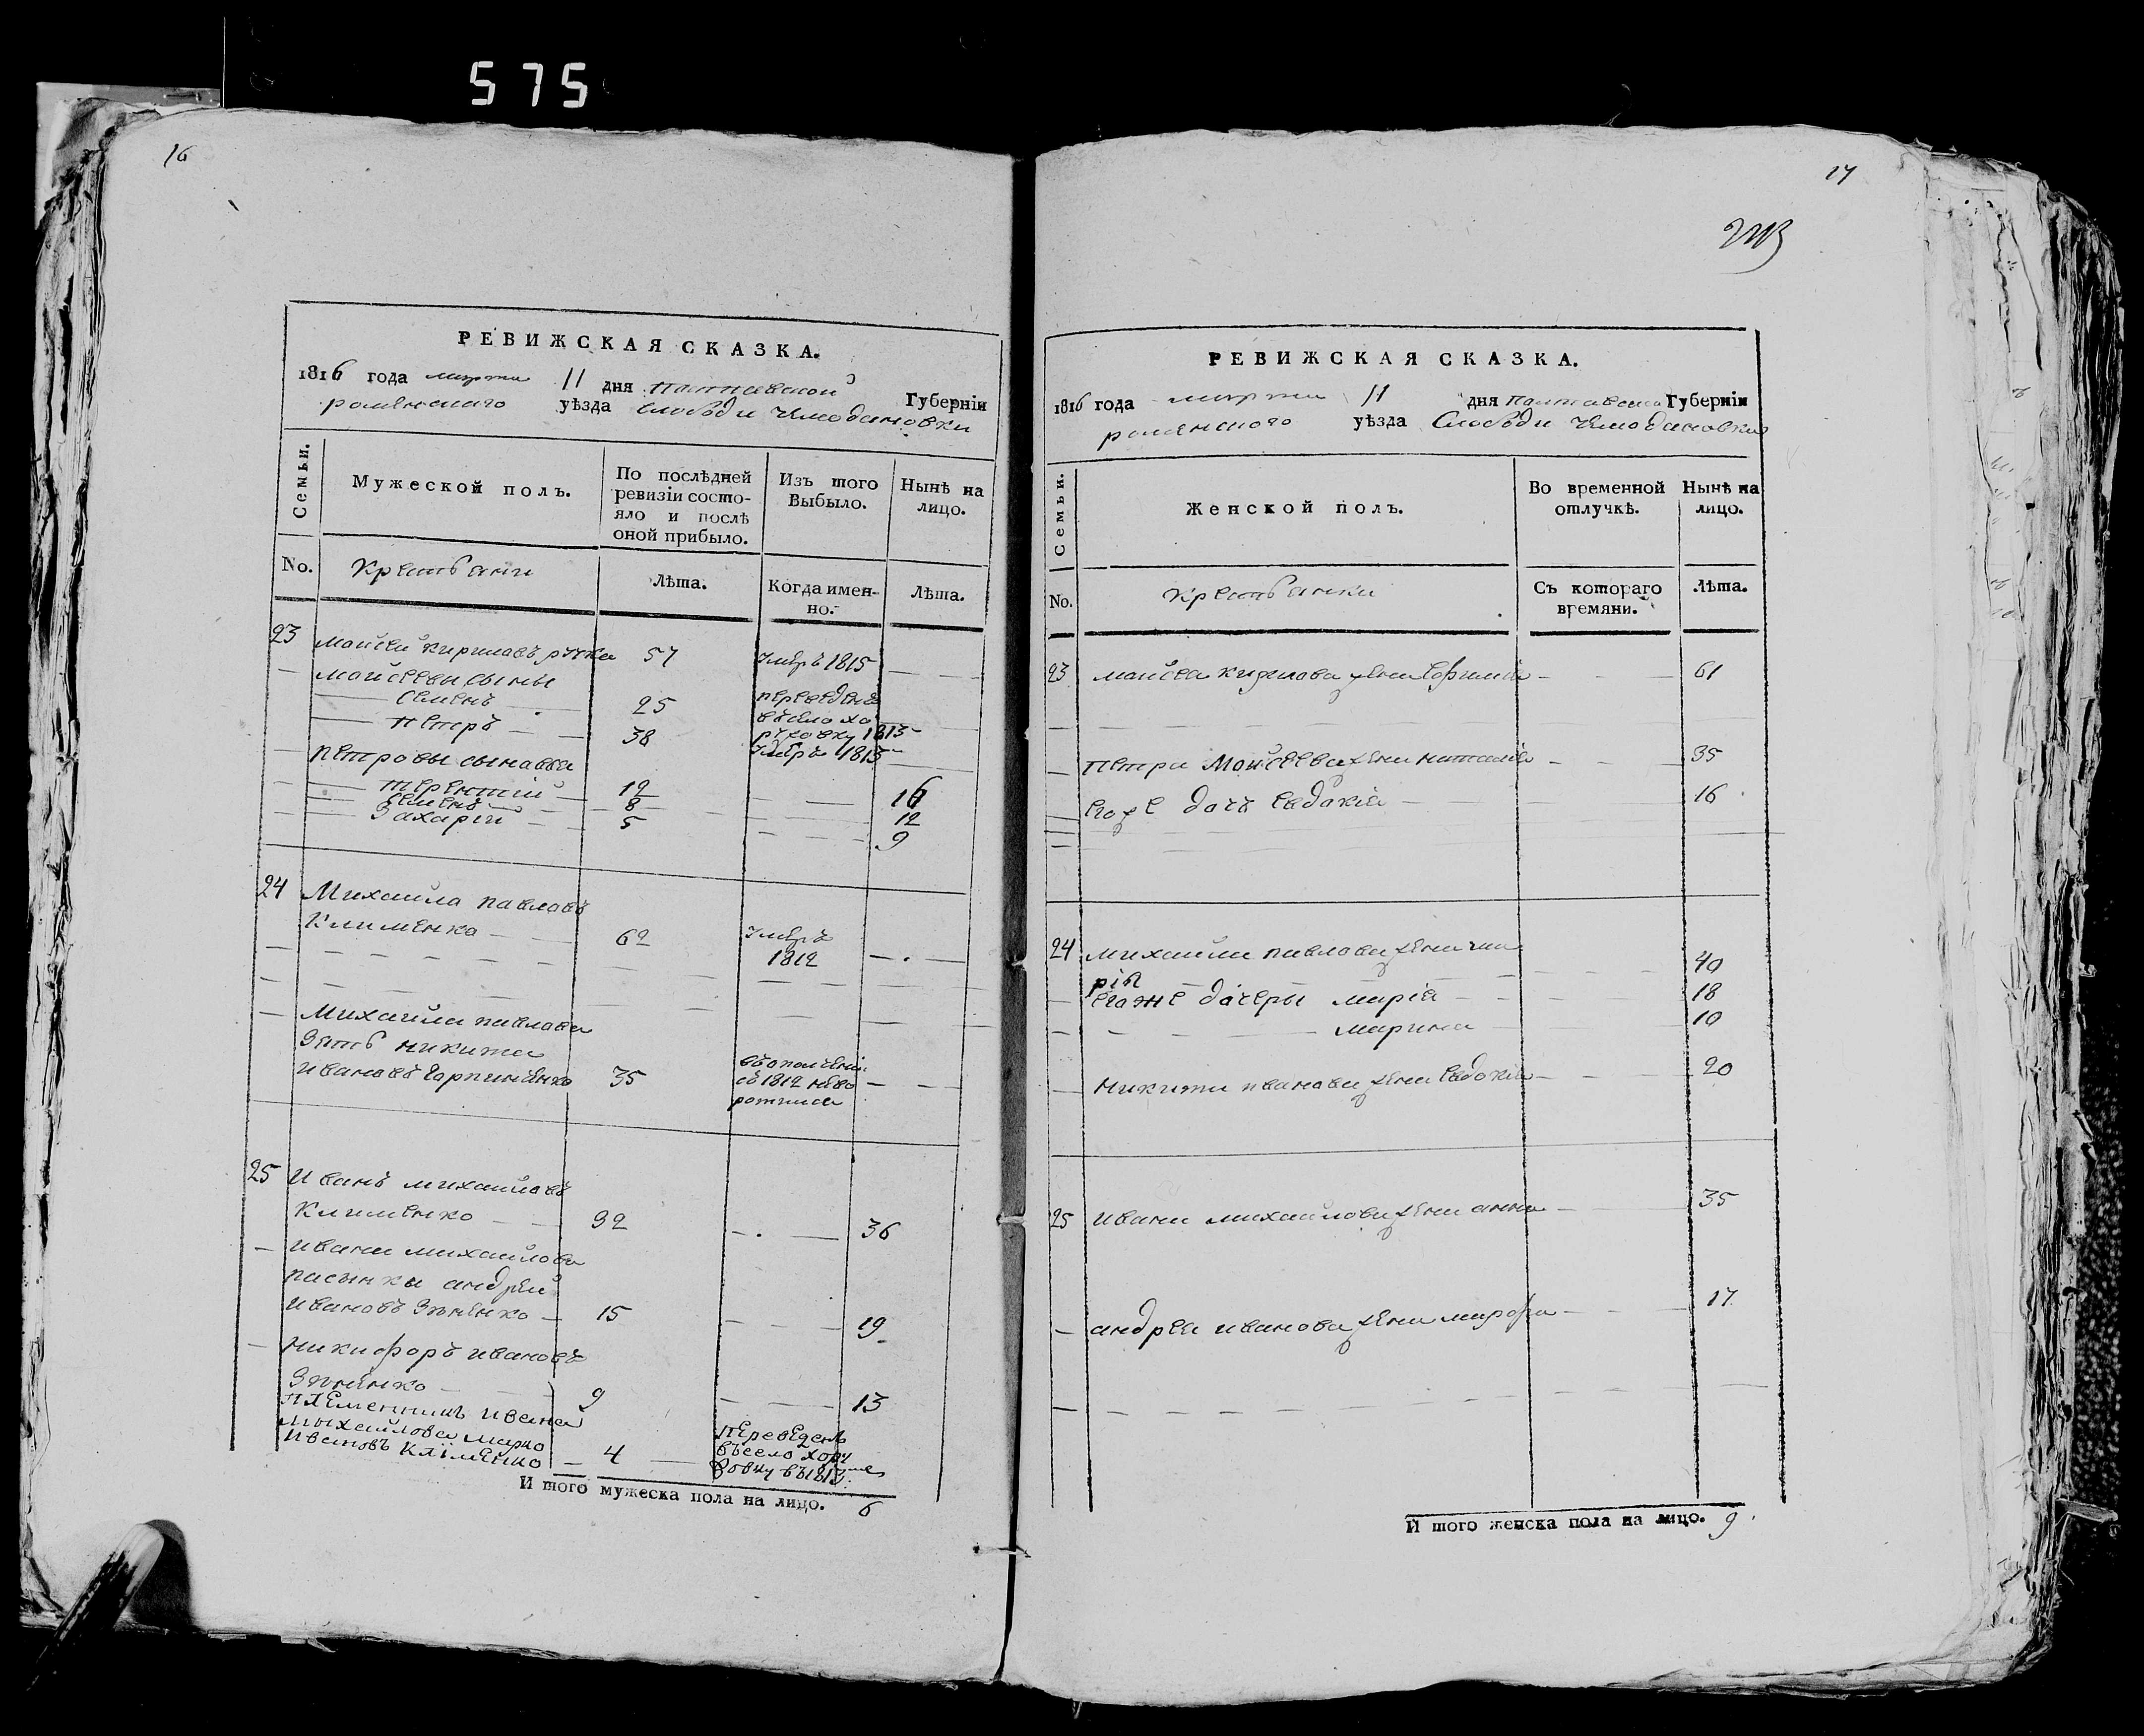 575
16
РЕВИЖСКАЯ СКАЗКА.
1816 года марта 11 дня полтавской Губерніи
роменского уѣзда слободи чемодановки
Семьи.
Мужеской полъ.
По послѣдней ревизіи состо-
яло и послѣ
оной прибыло.
Изъ того
Выбыло.
Нынѣ на
лицо.
No.
Крестьяни
Лѣта.
Когда имен-
но.
Лѣта.
23 мойсей кириловъ ручка 57 умеръ 1815
мойсеевы сыны
семенъ 25 переведенъ
въ село хо
петръ 38 руховку 1813
умеръ 1815
петровы сыновья
терентій 12 16
семенъ 8 12
Захарій 5 9
24 Михайла павловъ
Клименко 62 умеръ
1812
Михайла павлова
Зять никита
ивановъ Карпиненко 35 въ ополченіи
съ 1812 нево
ротился
25 Иванъ михайловъ
Клименко 32 36
ивана михайлова
пасынки андрей
ивановъ Зѣненко 15 19
никифоръ ивановъ
Зѣненко 9 13
племенникъ ивана
михайлова марко
ивановъ Кліменко 4 переведенъ
въ село хору
ховку въ 1813
И того мужеска пола на лицо. 6
17
РЕВИЖСКАЯ СКАЗКА.
1816 года марта 11 дня полтавской Губерніи
роменского уѣзда слободи чемодановки
Семьи.
Женской полъ.
Во временной
отлучкѣ.
Нынѣ на
лицо.
No.
крестьянки
Съ котораго
времяни.
Лѣта.
23 мойсея кирилова жена Ефимія 61
петра Мойсеева жена наталія 35
Егоже дочь Евдокія 16
24 михайла павлова жена ма
рія 40
Егоже дочеры марія 18
марина 10
никити иванова жена Евдокія 20
25 ивана михайлова жена анна 35
андрея иванова жена марфа 17
И того женска пола на лицо. 9